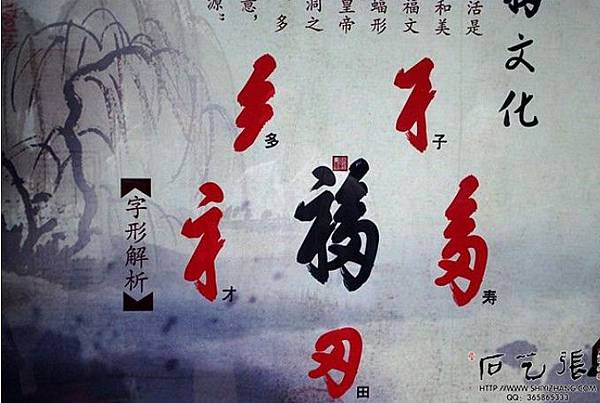 文化
活是
和美
福文
蝠形
皇帝
洞之
多
意，
源”
多
子
福
才
寿
田
【字形解析】
石艺張
HTTP://WWW.SHIYIZHANG.COM
QQ: 365865333